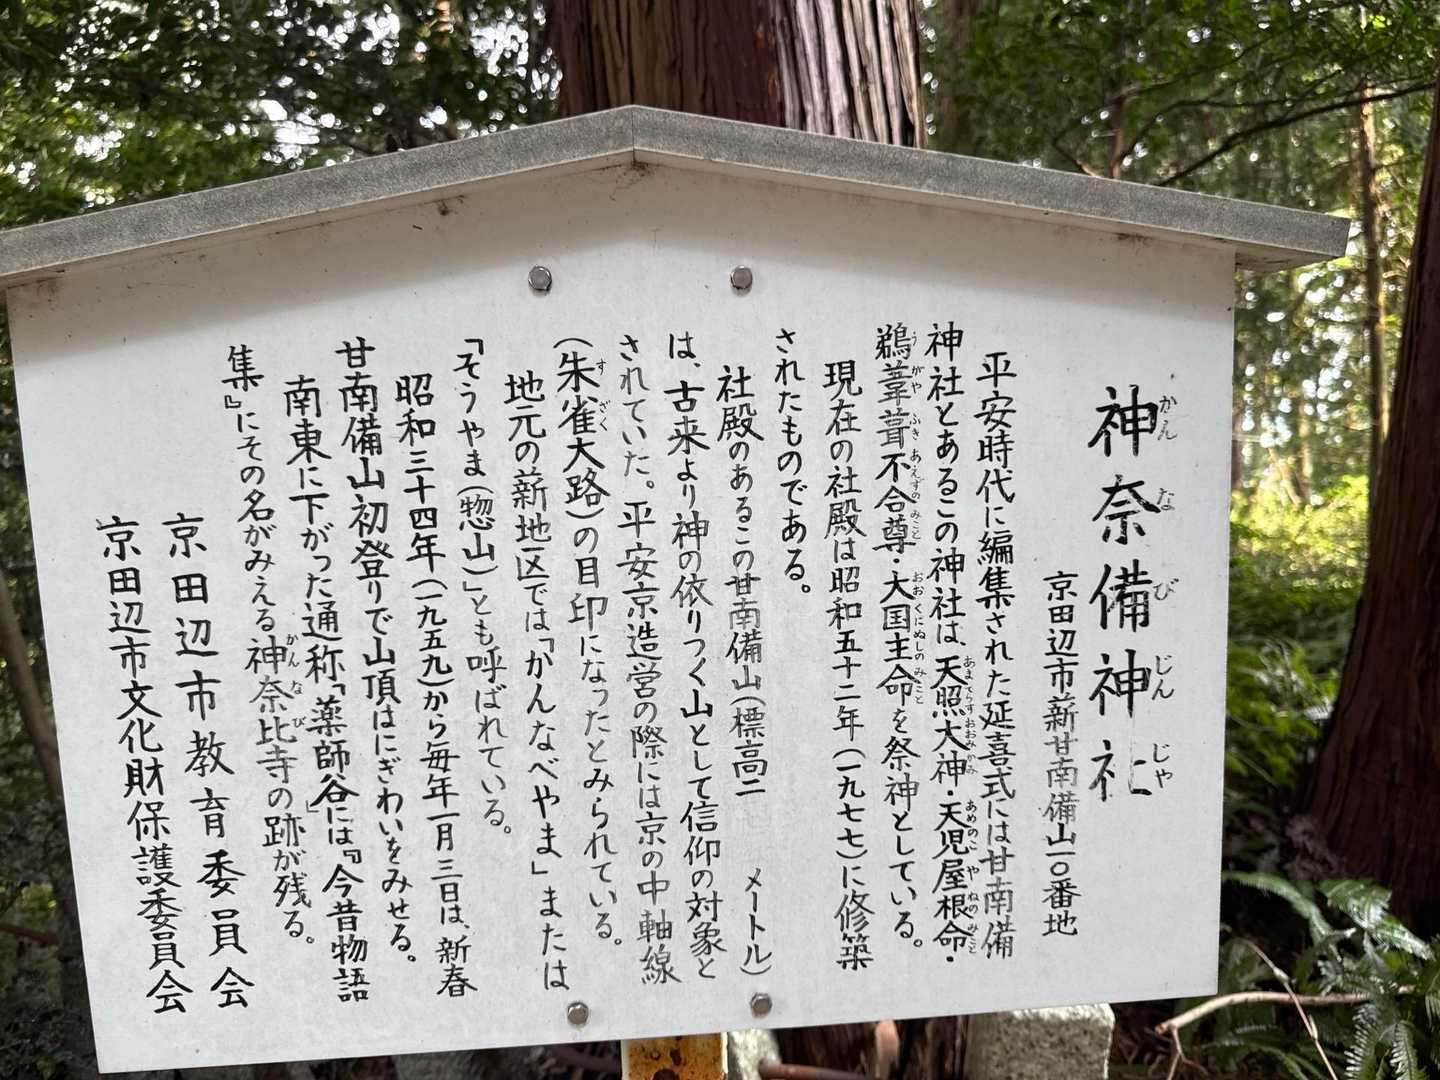 神奈備神社
京田辺市薪甘南備山一〇番地
平安時代に編集された延喜式には甘南備
神社とあるこの神社は、天照大神・天児屋根命・
鵜葺葺不合尊・大国主命を祭神としている。
現在の社殿は昭和五十二年(一九七七)に修築
されたものである。
社殿のあるこの甘南備山(標高二 メートル)
は、古来より神の依りつく山として信仰の対象と
されていた。平安京造営の際には京の中軸線
(朱雀大路)の目印になったとみられている。
地元の薪地区では「かんなべやま」または
「そうやま(惣山)」とも呼ばれている。
昭和三十四年(一九五九)から毎年一月三日は、新春
甘南備山初登りで山頂はにぎわいをみせる。
南東に下がった通称「薬師谷」には『今昔物語
集』にその名がみえる神奈比寺の跡が残る。
京田辺市教育委員会
京田辺市文化財保護委員会